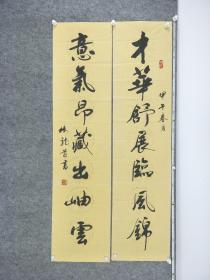 甲午春月
才華舒展臨風錦
意氣昂藏出岫雲
書